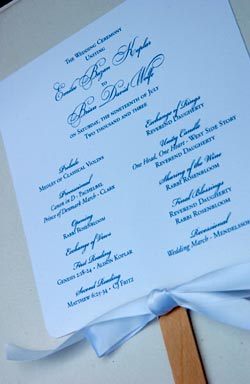 The Wedding Ceremony
Uniting
Evelin Bryon Kepler
to
Brian David Wolfe
on Saturday, the nineteenth of July
Two thousand and three
Prelude
Medley of Classical Violins
Processional
Canon in D - Pachelbel
Prince of Denmark March - Clark
Opening
Rabbi Rosenbloom
Exchange of Vows
First Reading
Genesis 2:18-24 - Alison Koplar
Second Reading
Matthew 6:25-34 - CJ Fritz
Exchange of Rings
Reverend Daugherty
Unity Candle
One Hand, One Heart - West Side Story
Reverend Daugherty
Sharing of the Wine
Rabbi Rosenbloom
Final Blessings
Reverend Daugherty
Rabbi Rosenbloom
Recessional
Wedding March - Mendelsso